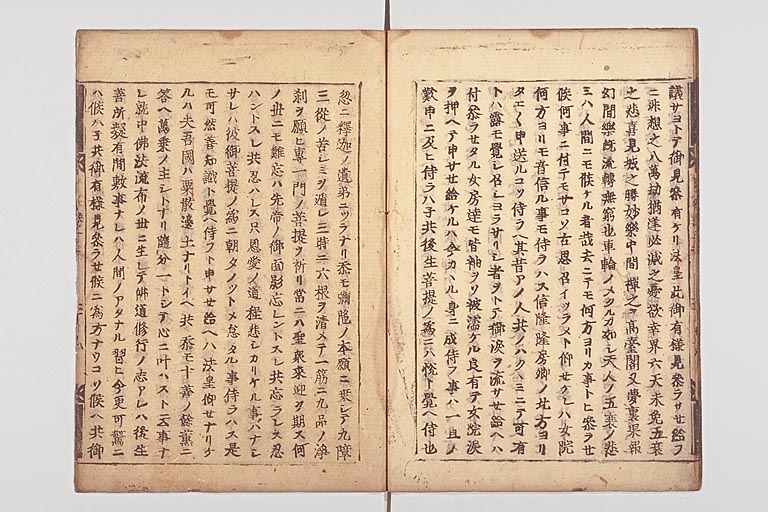 議サヨトテ御見參有ケリ法皇此御有様見參ラサセ給フ
ニ非想之八萬劫猶逢必滅之憂欲界六天未免五衰
之悲喜見城之勝妙樂中間禪之高臺閣又夢裏果報
幻間樂既流轉無窮也車輪ノメクルカ如シ天人ノ五衰ノ悲
ミハ人間ニモ候ケル者哉去ニテモ何方ヨリカ事トヒ參ラセ
候何事ニ付テモサコソ古思召イツラメト仰セケレハ女院
何方ヨリモ音信ル事モ侍ラハス信隆隆房卿ノ北方ヨリ
タエ〱申送ルコソ侍ラヘ其昔アノ人共ノハククミニテ可有
トハ露モ覺シ召ヨラサリシ者ヲトテ御涙ヲ流サセ給ヘハ
付參ラセタル女房達モ皆袖ヲソ被濡ケル良有テ女院涙
ヲ押ヘテ申サセ給ケルハ今カヽル身ニ成侍フ事ハ一旦ノ
歎申ニ及ヒ侍ラハ子共後生菩提ノ爲ニハ悦ト覺ヘ侍也
忽ニ釋迦ノ遺弟ニツラナリ忝モ彌陀ノ本願ニ乗シテ九障
三從ノ苦シミヲ遁レ三時ニ六根ヲ清メテ一筋ニ九品ノ淨
刹ヲ願ヒ專一門ノ菩提ヲ祈リ當ニハ聖衆來迎ヲ期ス何
ノ世ニモ難忘ハ先帝ノ御面影忘レントスレ共忘ラレス忍
ハントスレ共忍ハレス只恩愛ノ道程悲シカリケル事ハナシ
サレハ彼御菩提ノ爲ニ朝タノツトメ怠タル事侍ラハス是
モ可然善知識ト覺ヘ侍フト申サセ給ヘハ法皇仰セナリケ
ルハ夫吾國ハ粟散邊土ナリトイヘ共忝モ十善ノ餘薫ニ
答ヘ萬乗ノ主シトナリ随分一トシテ心ニ叶ハスト云事ナ
シ就中佛法流布ノ世ニ生レテ佛道修行ノ志アレハ後生
善所疑有間敷事ナレハ人間ノアタナル習ヒ今更可驚ニ
ハ候ハ子共御有様見參ラセ候ニ爲方ナウコソ候ヘ共御